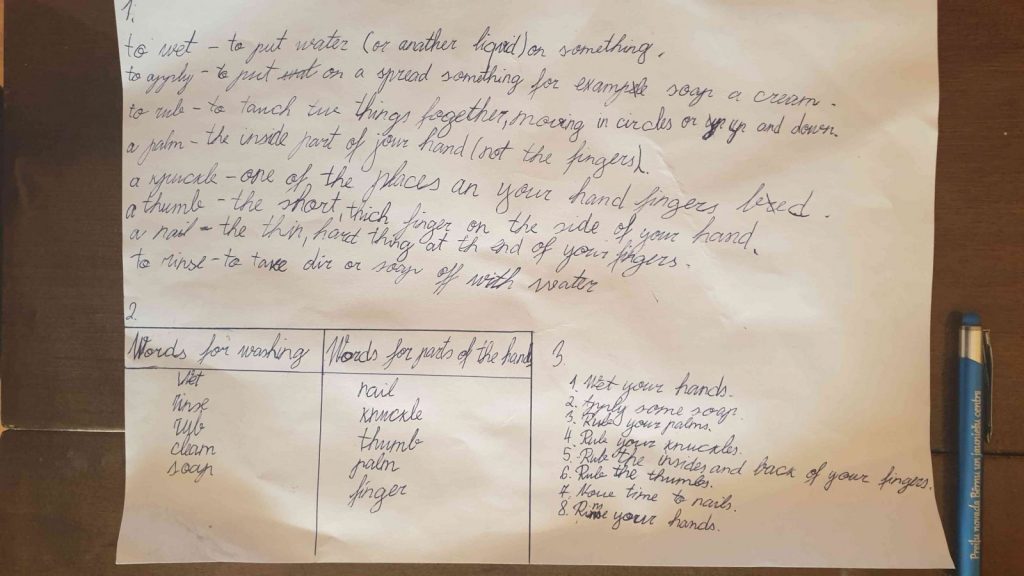 1.
to wet - to put water (or anather liquid) on something.
to apply - to put on a spread something for example soap a cream.
to rub - to tauch two things together, moving in circles or up and down.
a palm - the inside part of your hand (not the fingers).
a knuckle - one of the places an your hand fingers, bend.
a thumb - the short, thick finger on the side of your hand.
a nail - the thin, hard thing at th end of your fingers.
to rinse - to take dir or soap off with water
2.
Words for washing Words for parts of the hand
Wet nail
rinse knuckle
rub thumb
clean palm
soap finger
3
1. Wet your hands.
2. Apply some soap.
3. Rub your palms.
4. Rub your knuckles.
5. Rub the insides and back of your fingers.
6. Rub the thumbs.
7. time to nails.
8. Rinse your hands.
Preiļu novada Bērnu un jauniešu centrs